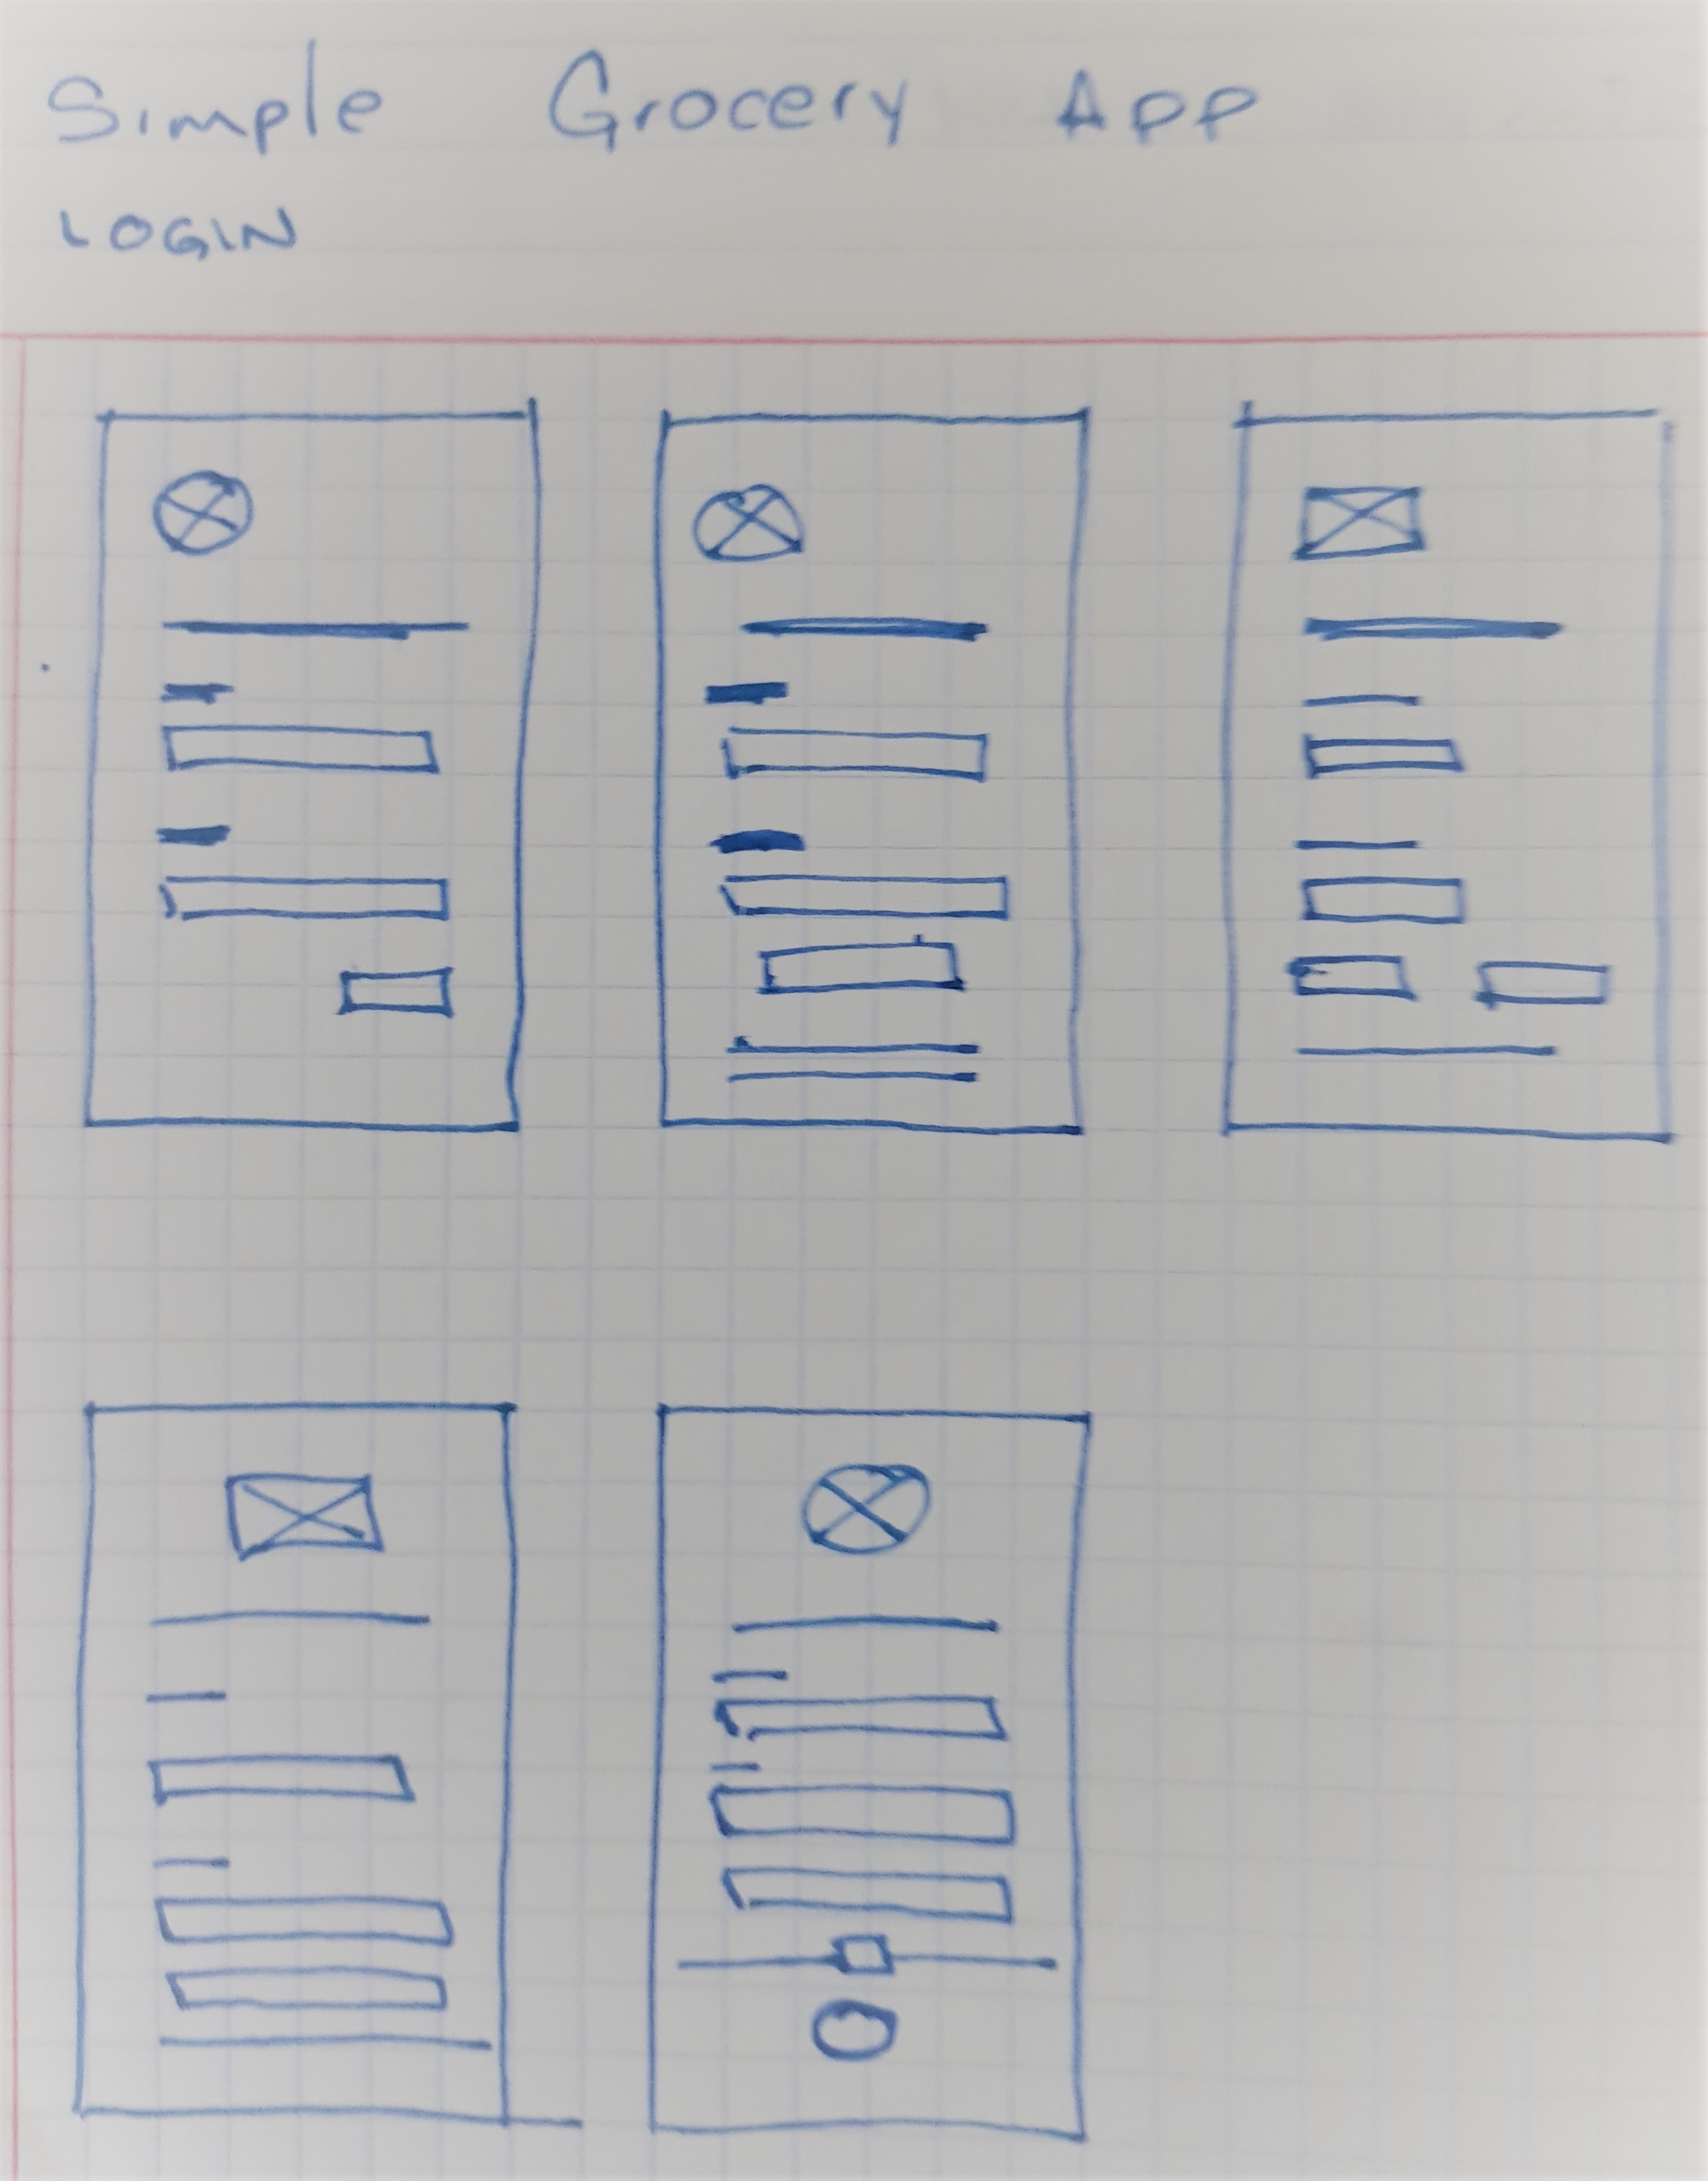 Simple Grocery App
LOGIN